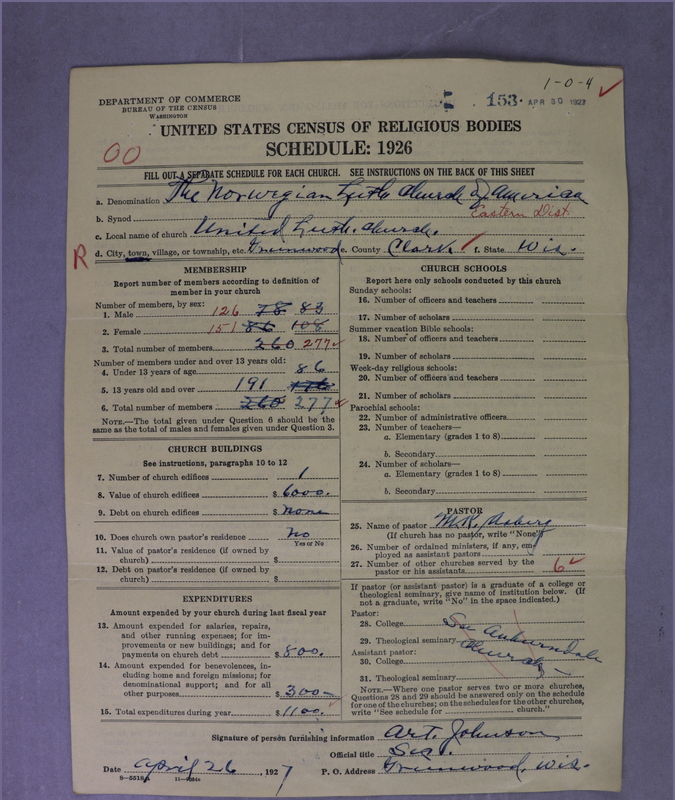 1-0-4
DEPARTMENT OF COMMERCE
BUREAU OF THE CENSUS
WASHINGTON
153 APR 30 1927
UNITED STATES CENSUS OF RELIGIOUS BODIES
SCHEDULE: 1926
00
FILL OUT A SEPARATE SCHEDULE FOR EACH CHURCH. SEE INSTRUCTIONS ON THE BACK OF THIS SHEET
a. Denomination The Norwegian Luth. Church of America
b. Synod Eastern Dist
c. Local name of church United Luth. Church.
R d. City, town, village, or township, etc. Greenwood e. County Clark f. State Wis.
MEMBERSHIP
Report number of members according to definition of
member in your church
Number of members, by sex:
1. Male 126 78 83
2. Female 151 86 108
3. Total number of members 260 277
Number of members under and over 13 years old:
4. Under 13 years of age 86
5. 13 years old and over 191
6. Total number of members 260 277
NOTE.—The total given under Question 6 should be the
same as the total of males and females given under Question 3.
CHURCH BUILDINGS
See instructions, paragraphs 10 to 12
7. Number of church edifices 1
8. Value of church edifices $ 6000.
9. Debt on church edifices $ None
10. Does church own pastor's residence? No
Yes or No
11. Value of pastor's residence (if owned by
church) $
12. Debt on pastor's residence (if owned by
church) $
EXPENDITURES
Amount expended by your church during last fiscal year
13. Amount expended for salaries, repairs,
and other running expenses; for im-
provements or new buildings; and for
payments on church debt $ 800.
14. Amount expended for benevolences,
including home and foreign missions; for
denominational support; and for all
other purposes $ 300—
15. Total expenditures during year $ 1100.
CHURCH SCHOOLS
Report here only schools conducted by this church
Sunday schools:
16. Number of officers and teachers
17. Number of scholars
Summer vacation Bible schools:
18. Number of officers and teachers
19. Number of scholars
Week-day religious schools:
20. Number of officers and teachers
21. Number of scholars
Parochial schools:
22. Number of administrative officers
23. Number of teachers—
a. Elementary (grades 1 to 8)
b. Secondary
24. Number of scholars—
a. Elementary (grades 1 to 8)
b. Secondary
PASTOR
25. Name of pastor M.K.
(If church has no pastor, write "None")
26. Number of ordained ministers, if any, em-
ployed as assistant pastors
27. Number of other churches served by the
pastor or his assistants 6
If pastor (or assistant pastor) is a graduate of a college or
theological seminary, give name of institution below. (If
not a graduate, write "No" in the space indicated.)
Pastor:
28. College See Auburndale
29. Theological seminary Church—
Assistant pastor:
30. College
31. Theological seminary
NOTE.—Where one pastor serves two or more churches,
Questions 28 and 29 should be answered only on the schedule
for one of the churches; on the schedules for the other churches,
write "See schedule for church."
Signature of person furnishing information Art. Johnson
Official title Sec.
Date April 26, 1927 P. O. Address Greenwood, Wis.